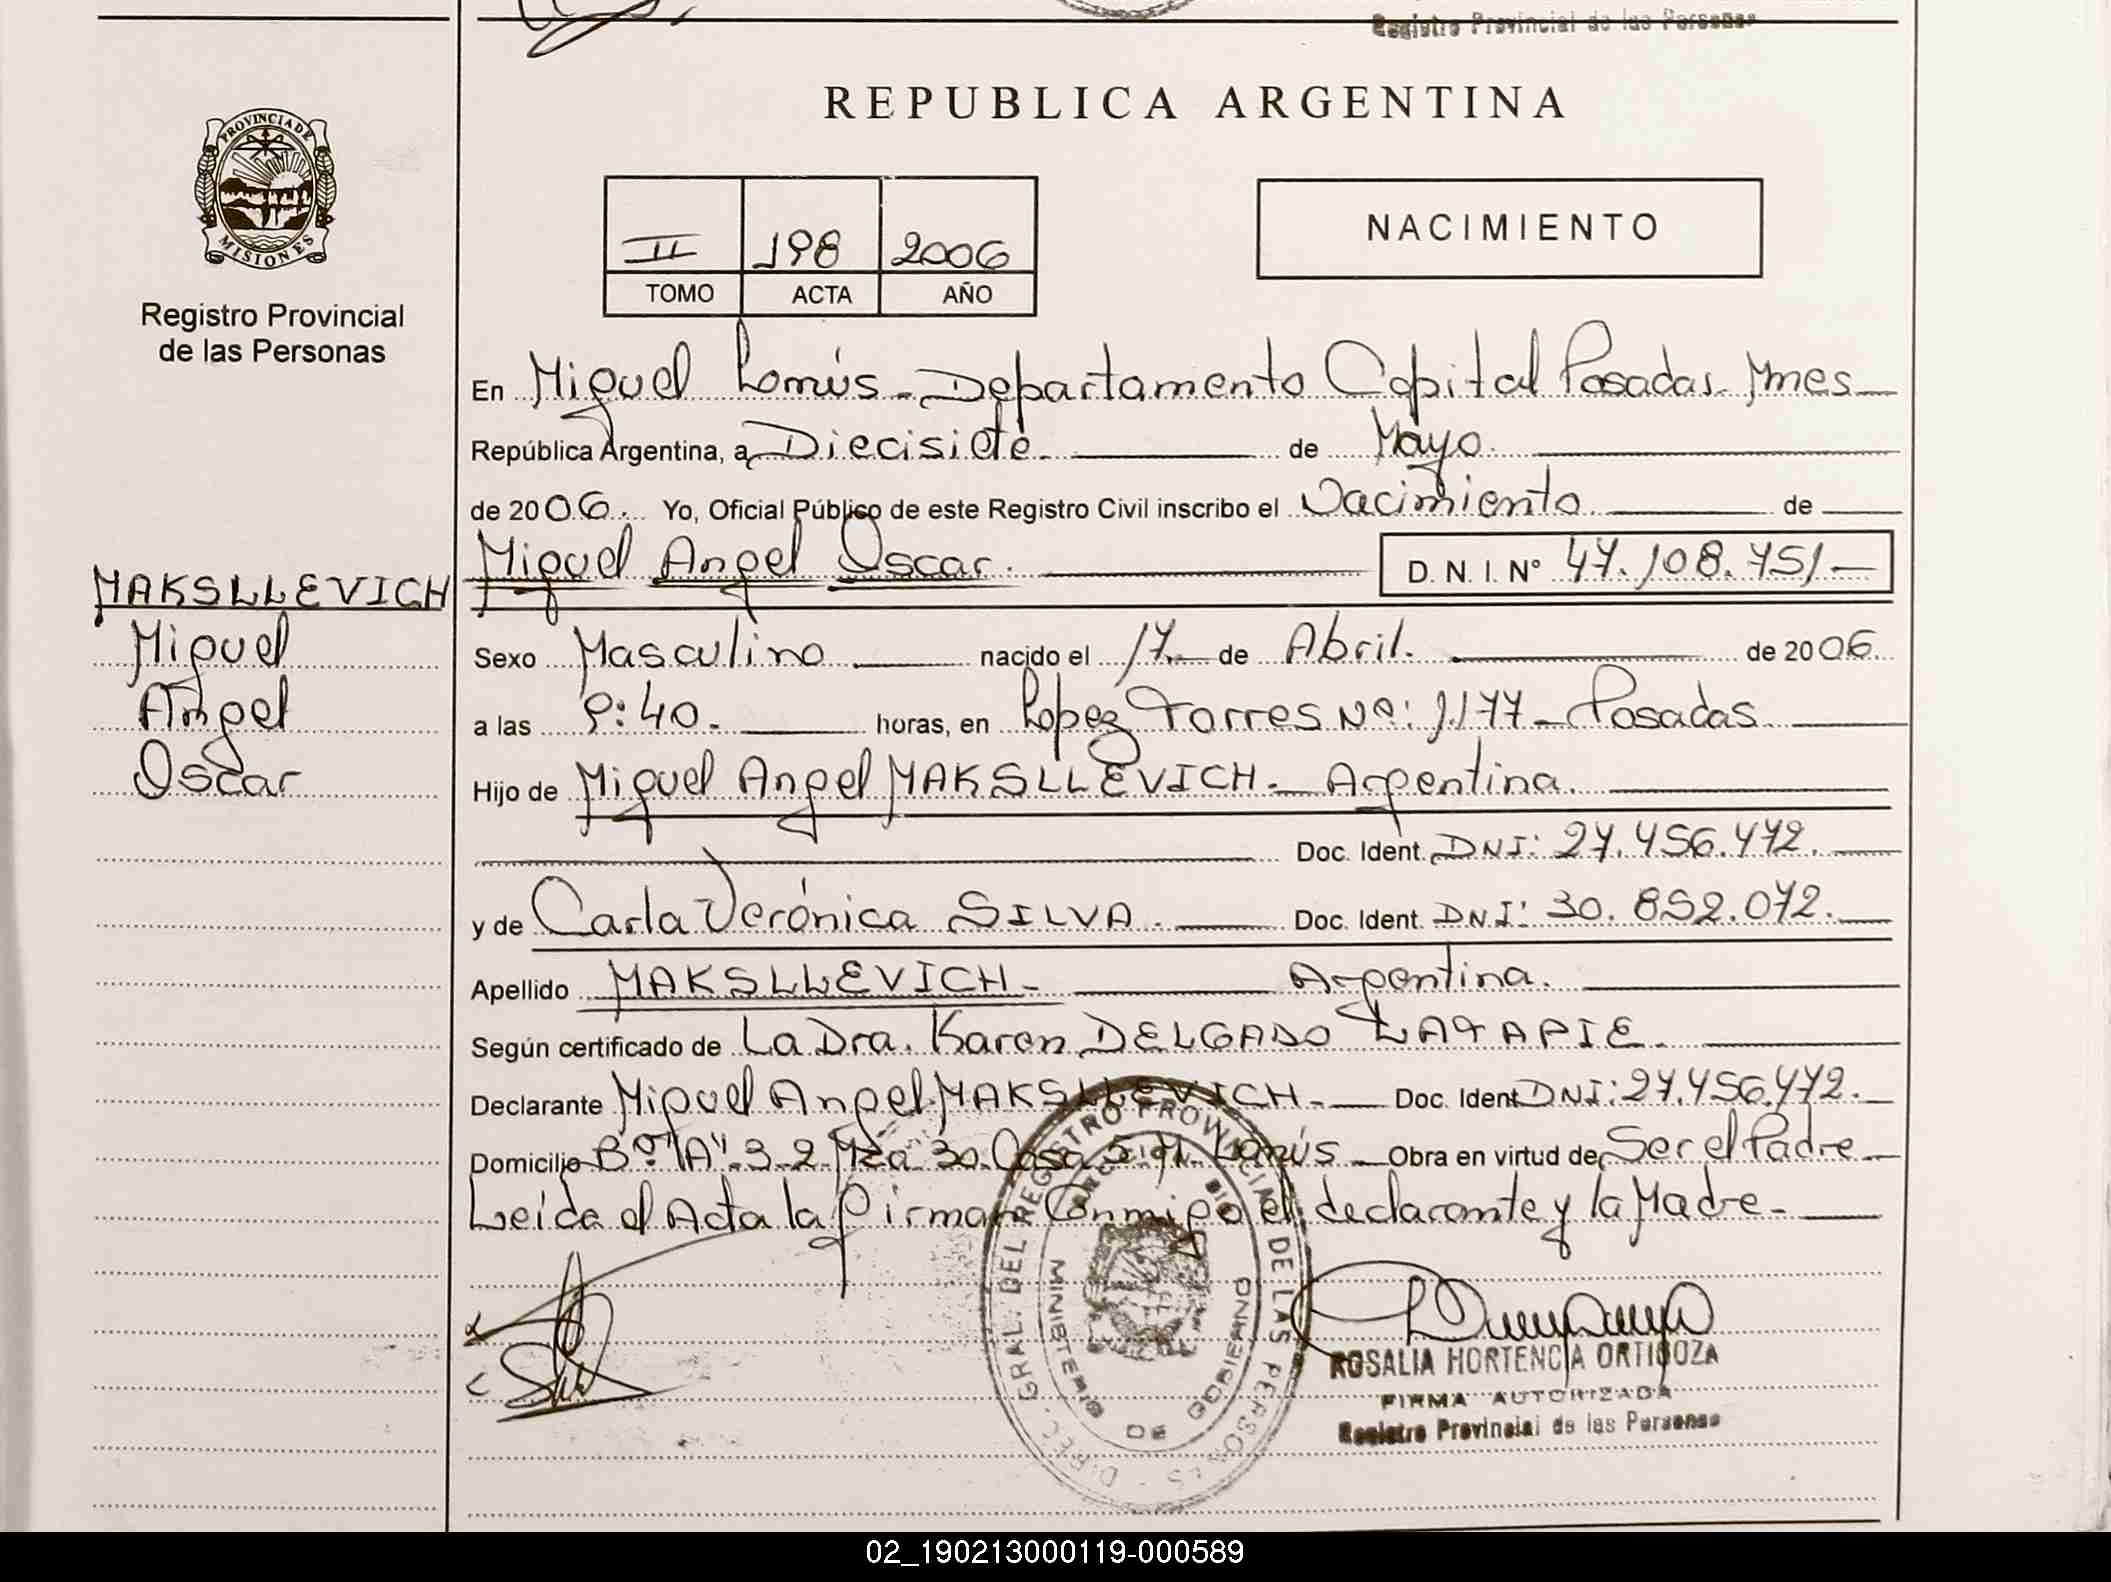 Registro Provincial de las Personas
REPUBLICA ARGENTINA
PROVINCIA DE
MISIONES
Registro Provincial
de las Personas
II 198 2006
TOMO ACTA AÑO
NACIMIENTO
En Miguel Lanús - Departamento Capital Posadas - Mnes
República Argentina, a Diecisiete de Mayo
de 2006. Yo, Oficial Público de este Registro Civil inscribo el Nacimiento de
Miguel Angel Oscar. D. N. I. Nº 47.108.751
MAKSLLEVICH
Miguel
Angel
Oscar
Sexo Masculino nacido el 17 de Abril. de 2006
a las 9:40. horas, en Lopez Torres Nº: 1177 - Posadas
Hijo de Miguel Angel MAKSLLEVICH - Argentina.
Doc. Ident. DNI: 27.456.472.
y de Carla Verónica SILVA. Doc. Ident. DNI: 30.852.072.
Apellido MAKSLLEVICH - Argentina.
Según certificado de La Dra. Karen DELGADO LATAPIE.
Declarante Miguel Angel MAKSLLEVICH - Doc. Ident DNI: 27.456.472.
Domicilio Bº "A" 3-2 Mza 30 Casa 5 M. Lanús Obra en virtud de Ser el Padre
Leída el Acta la firman Conmigo el declarante y la Madre -
DIREC. GRAL. DEL REGISTRO PROVINCIAL DE LAS PERSONAS
MINISTERIO DE GOBIERNO
ROSALIA HORTENCIA ORTIGOZA
FIRMA AUTORIZADA
Registro Provincial de las Personas
02_190213000119-000589